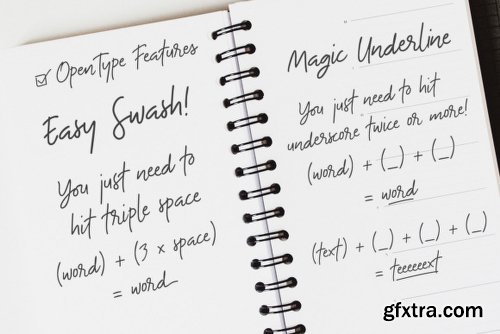 ☑ OpenType Features
Easy Swash!
You just need to
hit triple space
(word) + (3 x space)
= word
Magic Underline
You just need to hit
underscore twice or more!
(word) + (_) + (_)
= word
(text) + (_) + (_) + (_)
= teeeeext
gfxtra.com